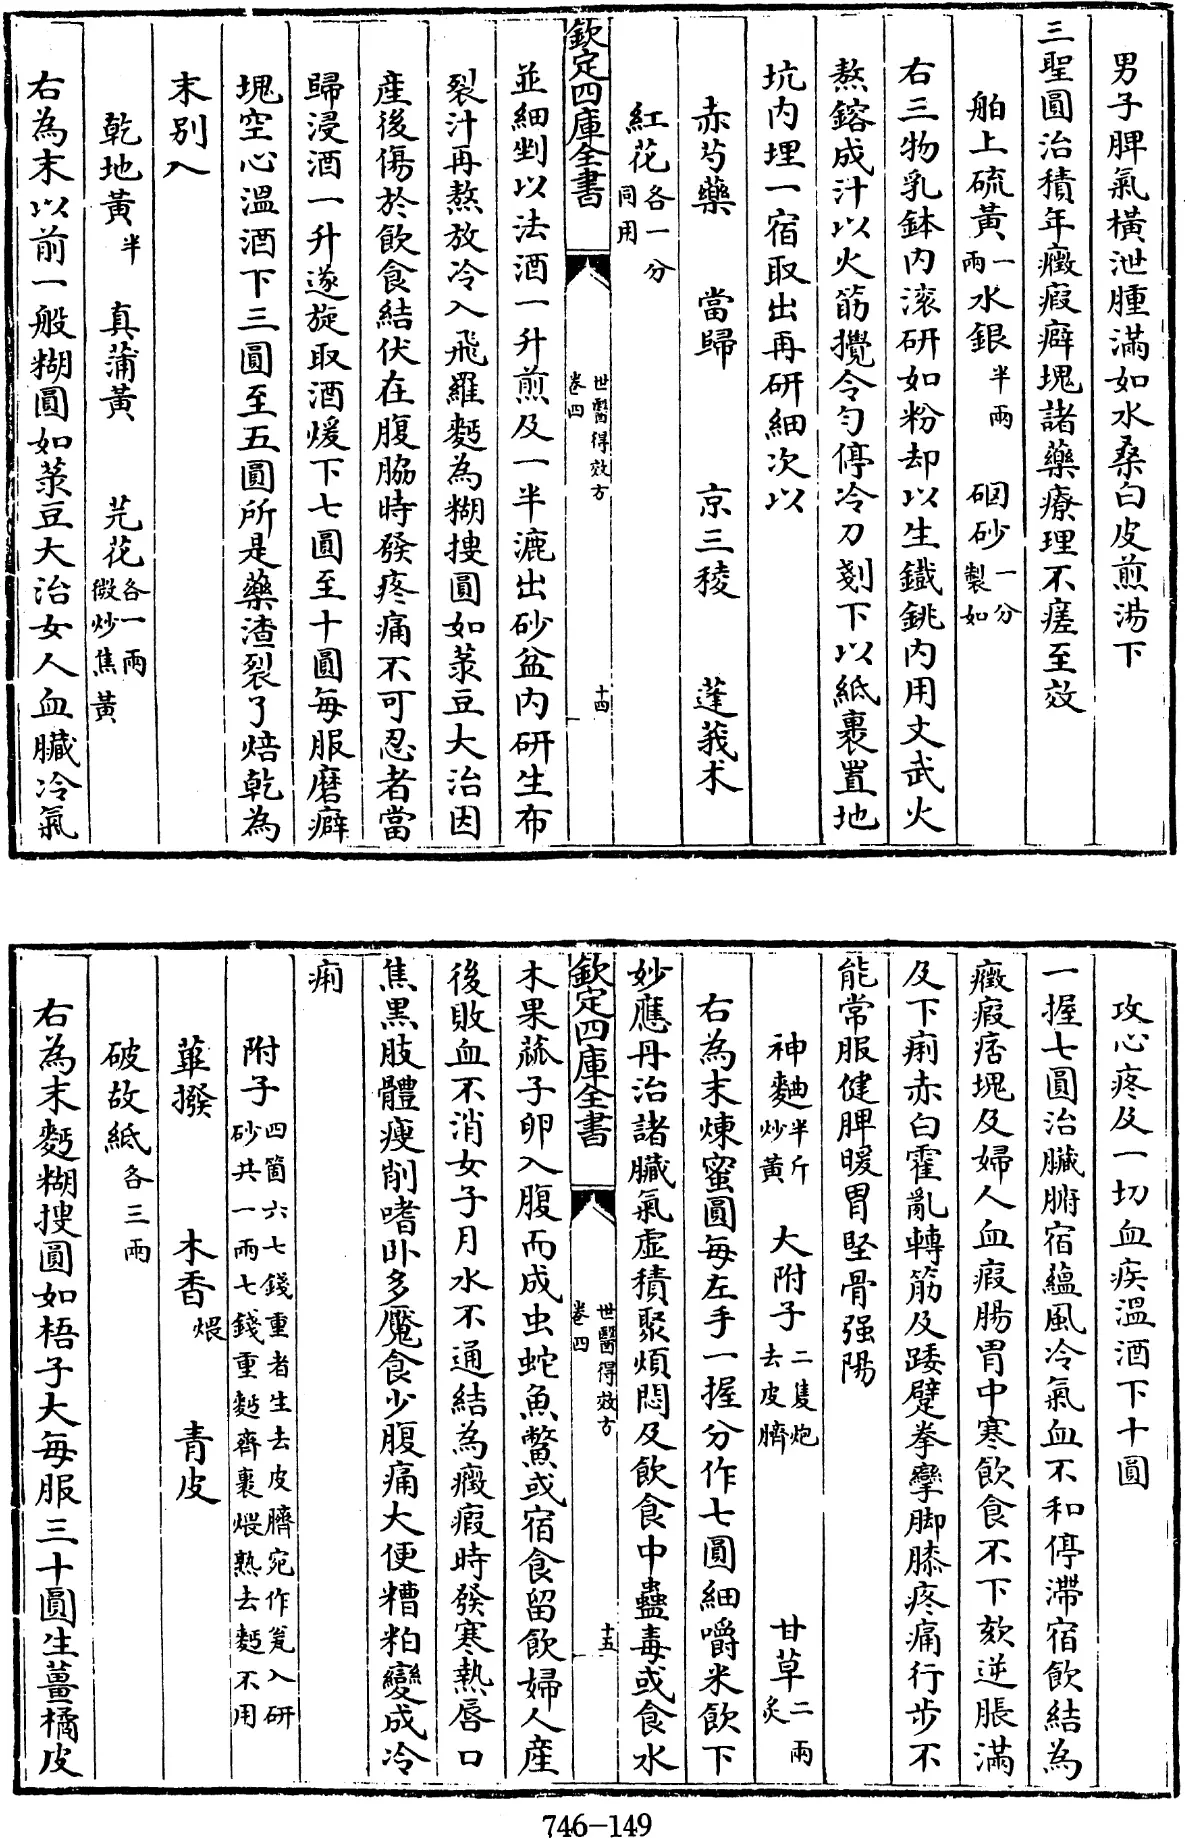 男子脾氣橫泄腫滿如水桑白皮煎湯下
三聖圓治積年癥瘕癖塊諸藥療理不瘥至效
舶上硫黃一兩水銀半兩 硇砂一分製如
右三物乳鉢內滚研如粉却以生鐵銚內用文武火
熬鎔成汁以火筯攪令匀停冷刀剗下以紙裹置地
坑內埋一宿取出再研細次以
赤芍藥 當歸 京三稜 蓬莪朮
紅花各一分同用
欽定四庫全書 世醫得效方 卷四 十四
並細剉以法酒一升煎及一半漉出砂盆內研生布
裂汁再熬放冷入飛羅麪為糊搜圓如菉豆大治因
產後傷於飲食結伏在腹脇時發疼痛不可忍者當
歸浸酒一升遂旋取酒煖下七圓至十圓每服磨癖
塊空心溫酒下三圓至五圓所是藥渣裂了焙乾為
末別入
乾地黃半 真蒲黃 芫花各一兩微炒焦黃
右為末以前一般糊圓如菉豆大治女人血臟冷氣
攻心疼及一切血疾溫酒下十圓
一握七圓治臟腑宿蘊風冷氣血不和停滯宿飲結為
癥瘕痞塊及婦人血瘕腸胃中寒飲食不下欬逆脹滿
及下痢赤白霍亂轉筋及踒躄拳攣脚膝疼痛行步不
能常服健脾暖胃堅骨强陽
神麯半斤炒黃 大附子二隻炮去皮臍 甘草二兩炙
右為末煉蜜圓每左手一握分作七圓細嚼米飲下
妙應丹治諸臟氣虛積聚煩悶及飲食中蠱毒或食水
欽定四庫全書 世醫得效方 卷四 十五
木果蓏子卵入腹而成虫蛇魚鱉或宿食留飲婦人産
後敗血不消女子月水不通結為癥瘕時發寒熱唇口
焦黑肢體瘦削嗜卧多魘食少腹痛大便糟粕變成冷
痢
附子四箇六七錢重者生去皮臍宛作瓮入研砂共一兩七錢重麪齊裹煨熟去麪不用
蓽撥 木香煨 青皮
破故紙各三兩
右為末麪糊搜圓如梧子大每服三十圓生薑橘皮
746-149